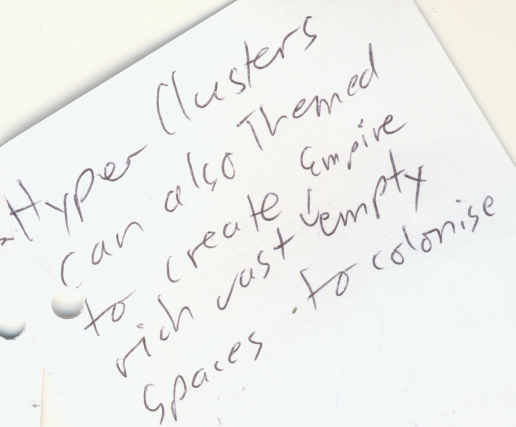 - Hyper Clusters
can also Themed
to create Empire
rich vast empty
spaces . to colonise